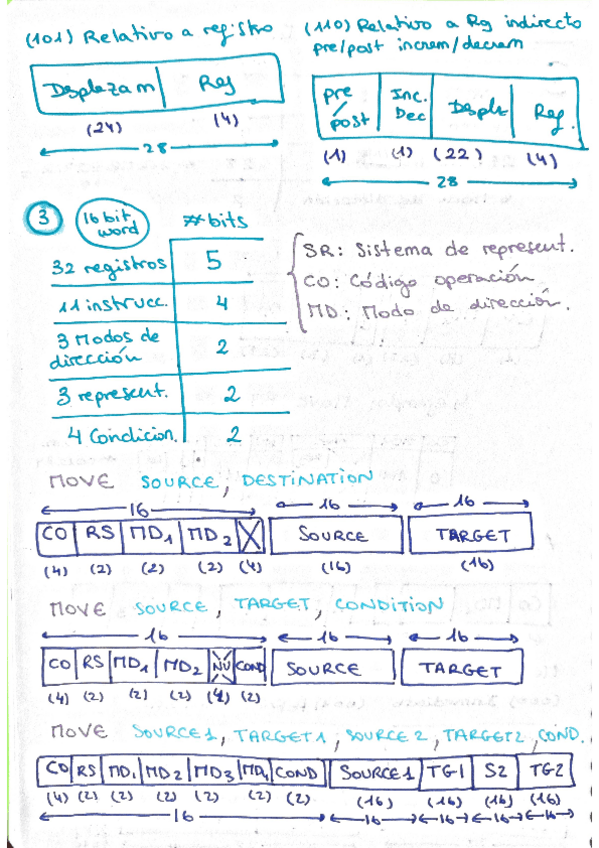 (101) Relativo a registro
Desplazam Reg
(24) (4)
28
(110) Relativo a Rg indirecto
pre/post increm/decrem
pre/post Inc. Dec Despla Reg.
(1) (1) (22) (4)
28
3 16 bit word # bits
32 registros 5
11 instrucc. 4
3 Modos de dirección 2
3 represent. 2
4 Condicion. 2
SR: Sistema de represent.
CO: Código operación
MD: Modo de dirección.
MOVE SOURCE, DESTINATION
16 16 16
CO RS MD1 MD2 X SOURCE TARGET
(4) (2) (2) (2) (4) (16) (16)
MOVE SOURCE, TARGET, CONDITION
16 16 16
CO RS MD1 MD2 NU COND SOURCE TARGET
(4) (2) (2) (2) (2)
MOVE SOURCE1, TARGET1, SOURCE2, TARGET2, COND.
CO RS MD1 MD2 MD3 COND SOURCE1 TG1 S2 TG2
(4) (2) (2) (2) (2) (2) (2) (16) (16) (16) (16)
16 16 16 16 16